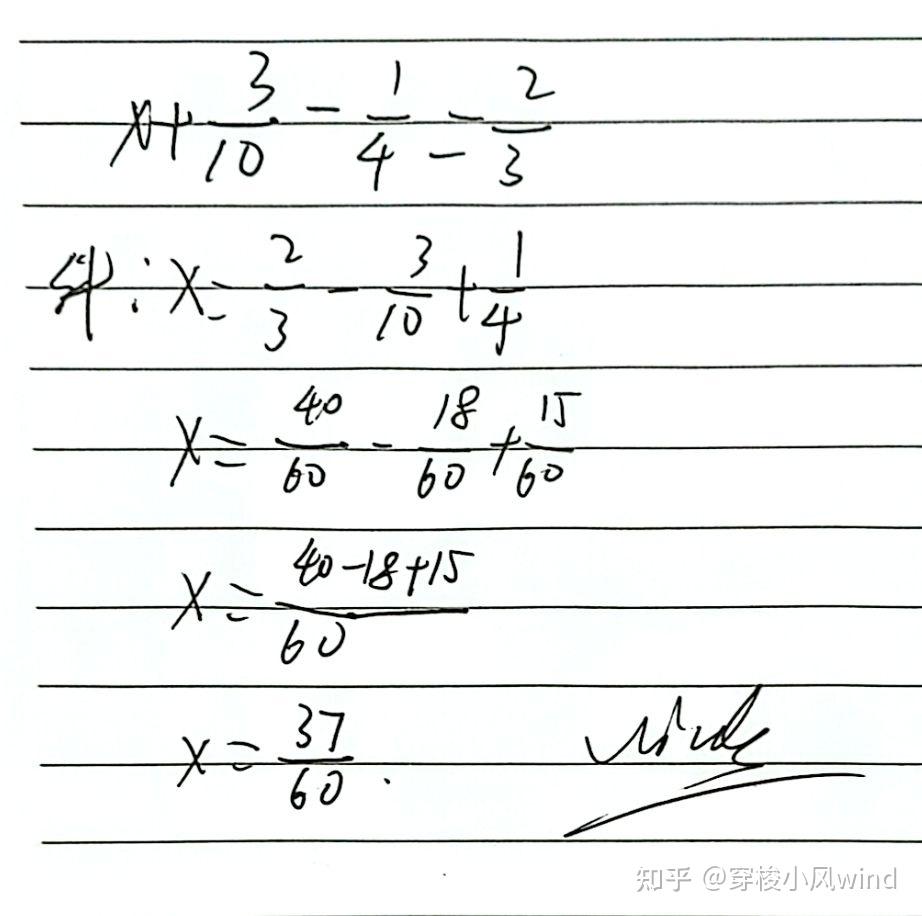 x+3/10-1/4=2/3
解:x=2/3-3/10+1/4
x=40/60-18/60+15/60
x=(40-18+15)/60
x=37/60.
wind
知乎 @穿梭小风wind